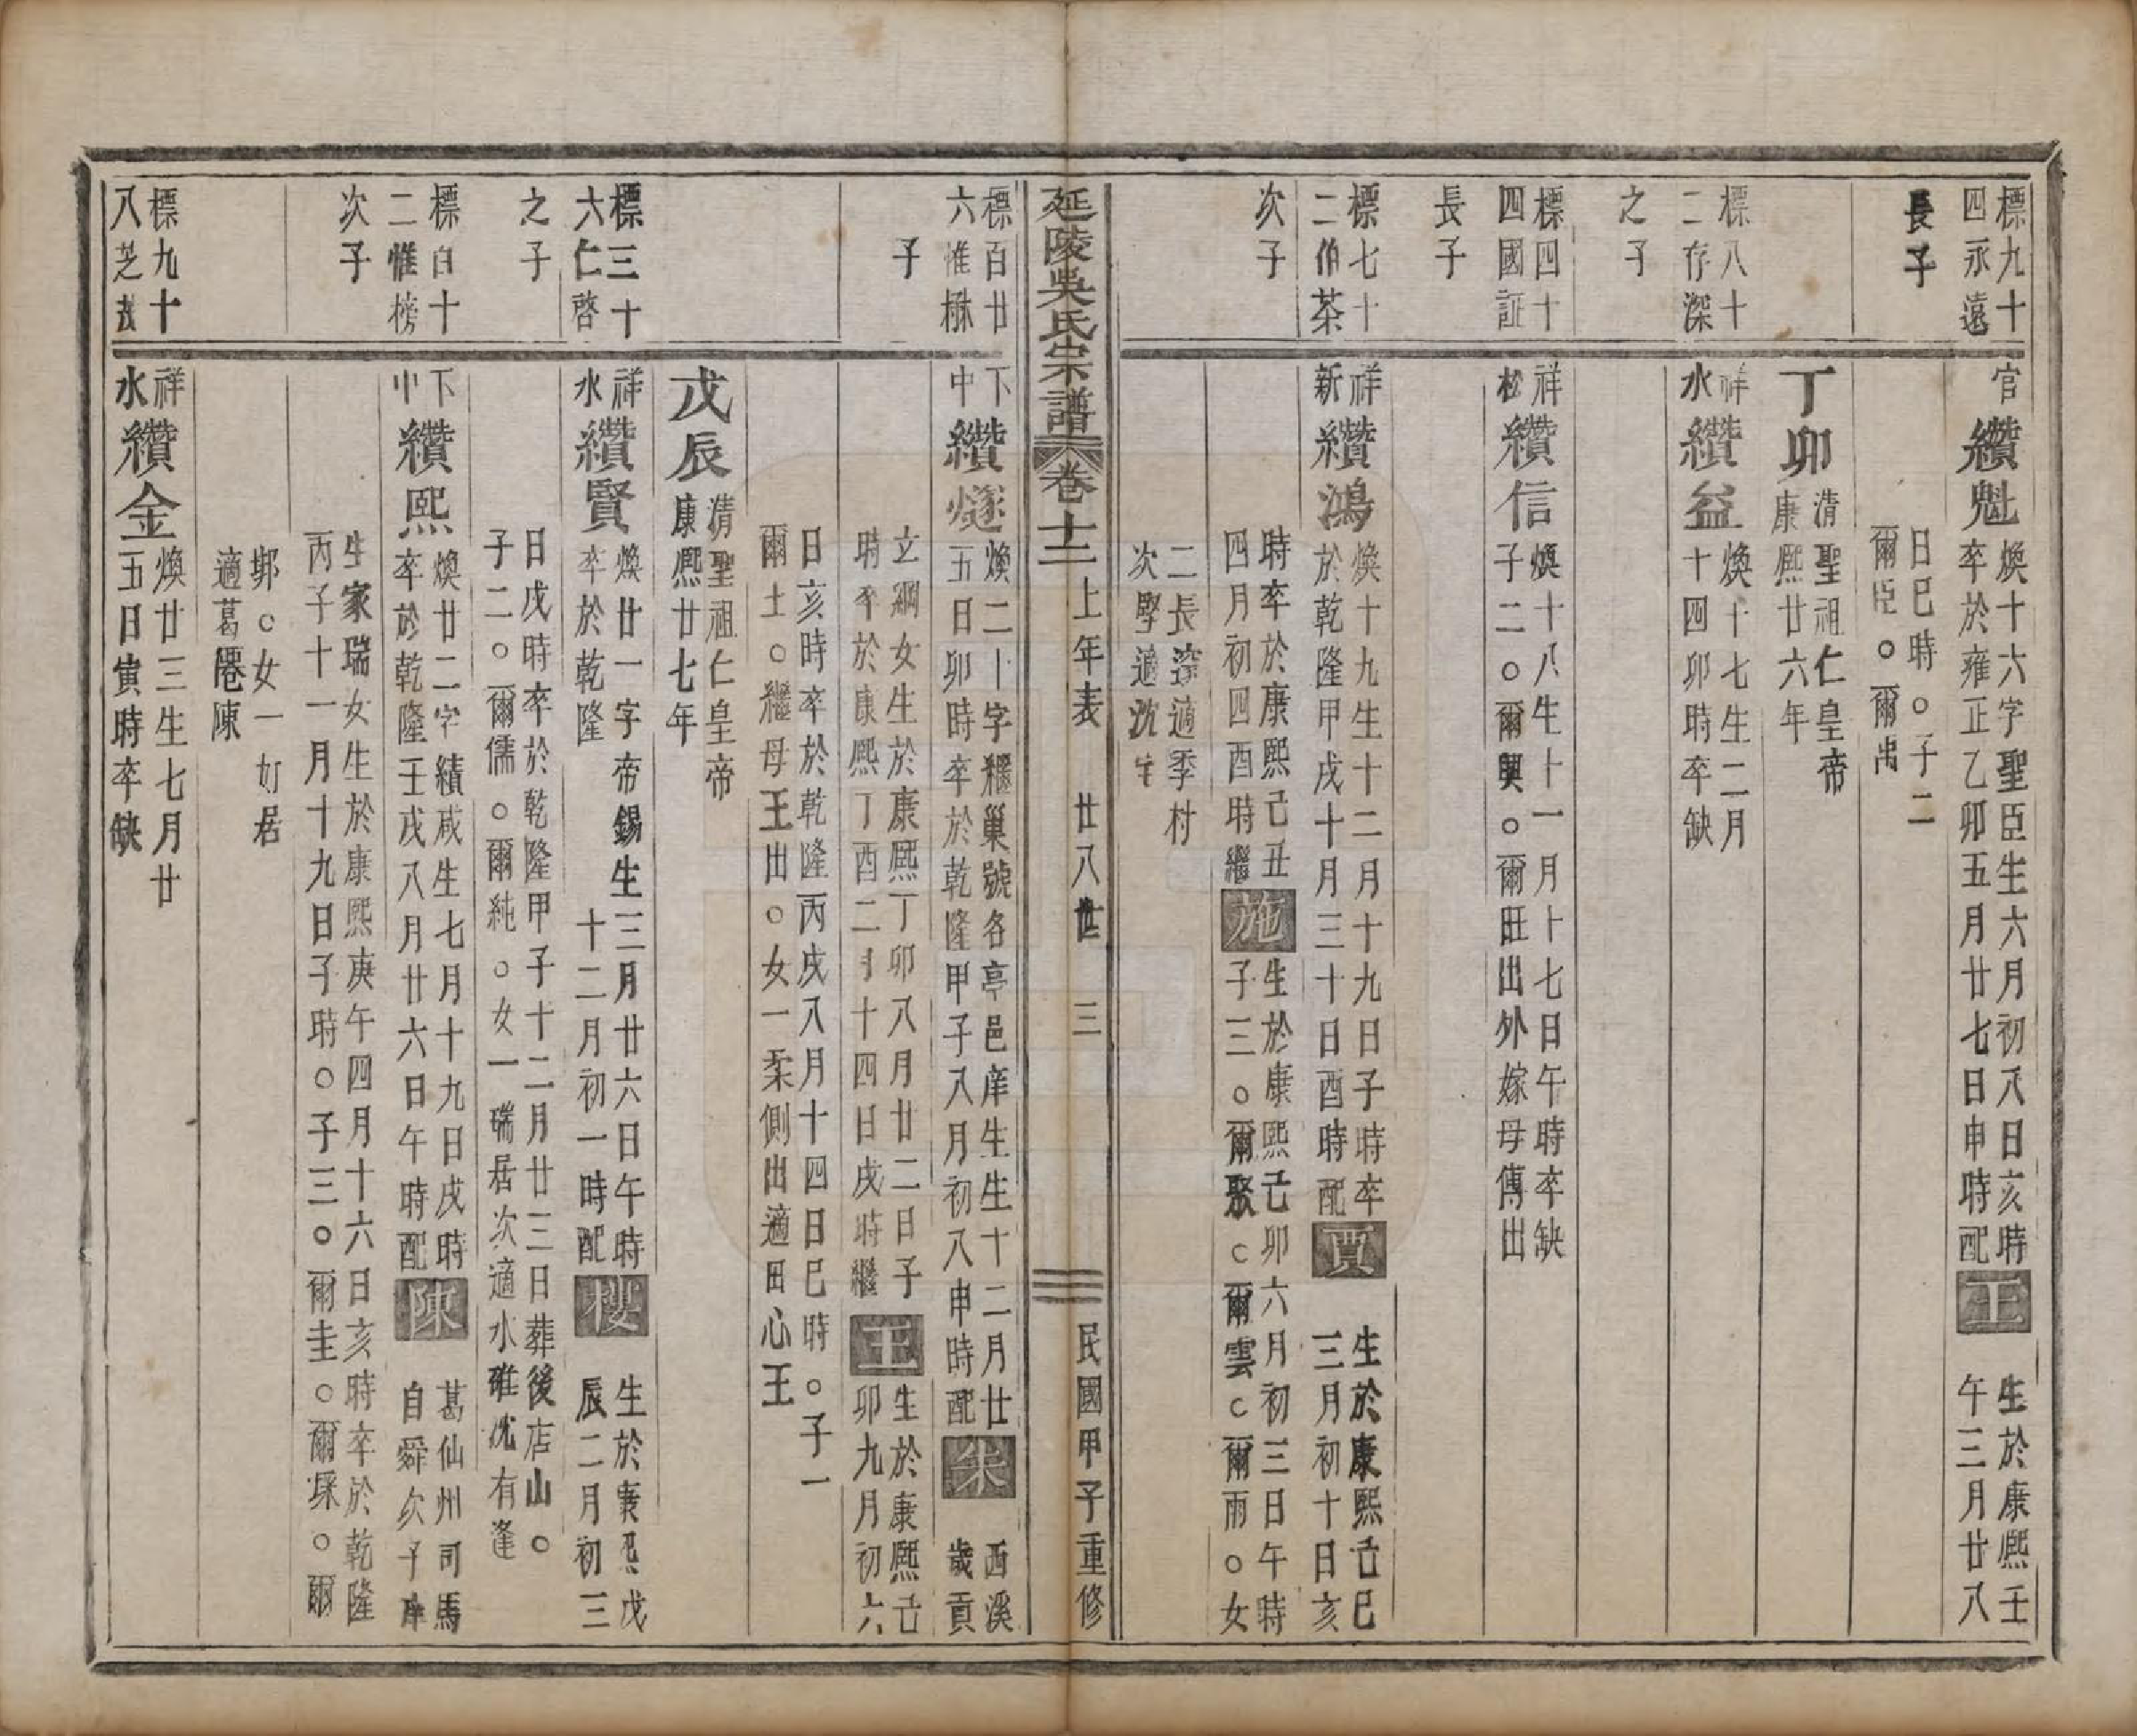 標九十
四永遠
長子
官 纘魁 煥十六字聖臣生六月初八日亥時
卒於雍正乙卯五月廿七日申時配 王 生於康熙壬
午三月廿八
日巳時○子二
爾臣○爾禹
丁卯 清聖祖仁皇帝
康熙廿六年
標八十
二存深
之子
祥
水 纘益 煥十七生二月
十四卯時卒缺
標四十
四國証
長子
祥
松 纘信 煥十八生十一月十七日午時卒缺
子二○爾興○爾旺出外嫁母傳出
標七十
二伯茶
次子
祥
新 纘鴻 煥十九生十二月十九日子時卒
於乾隆甲戌十月三十日酉時配 賈 生於康熙己巳
三月初十日亥
時卒於康熙己丑
四月初四酉時繼 施 生於康熙己卯六月初三日午時
子三○爾聚○爾雲○爾雨○女
二長 適季村
次 適沈宅
延陵吳氏宗譜 卷十二 上年表 廿八世 三 民國甲子重修
標百廿
六惟楙
子
下
中 纘燧 煥二十字繼巢號各亭邑庠生生十二月廿
五日卯時卒於乾隆甲子八月初八申時配 朱 西溪
歲貢
立綱女生於康熙丁卯八月廿二日子
時卒於康熙丁酉二月十四日戌時繼 王 生於康熙己
卯九月初六
日亥時卒於乾隆丙戌八月十四日巳時○子一
爾士○繼母王出○女一柔側出適田心王
戊辰 清聖祖仁皇帝
康熙廿七年
標三十
六仁啓
之子
祥
水 纘賢 煥廿一字帝錫生三月廿六日午時
卒於乾隆 十二月初一時配 樓 生於康熙戊
辰二月初三
日戌時卒於乾隆甲子十二月廿三日葬後店山○
子二○爾儒○爾純○女一瑞居次適水碓沈有逢
標百十
二惟榜
次子
下
中 纘熙 煥廿二字績咸生七月十九日戌時
卒於乾隆壬戌八月廿六日午時配 陳 葛仙州司馬
自舜次子庠
生家瑞女生於康熙庚午四月十六日亥時卒於乾隆
丙子十一月十九日子時○子三○爾圭○爾琛○爾
邺○女一 居
適葛 陳
標九十
八芝
祥
水 纘金 煥廿三生七月廿
五日寅時卒缺